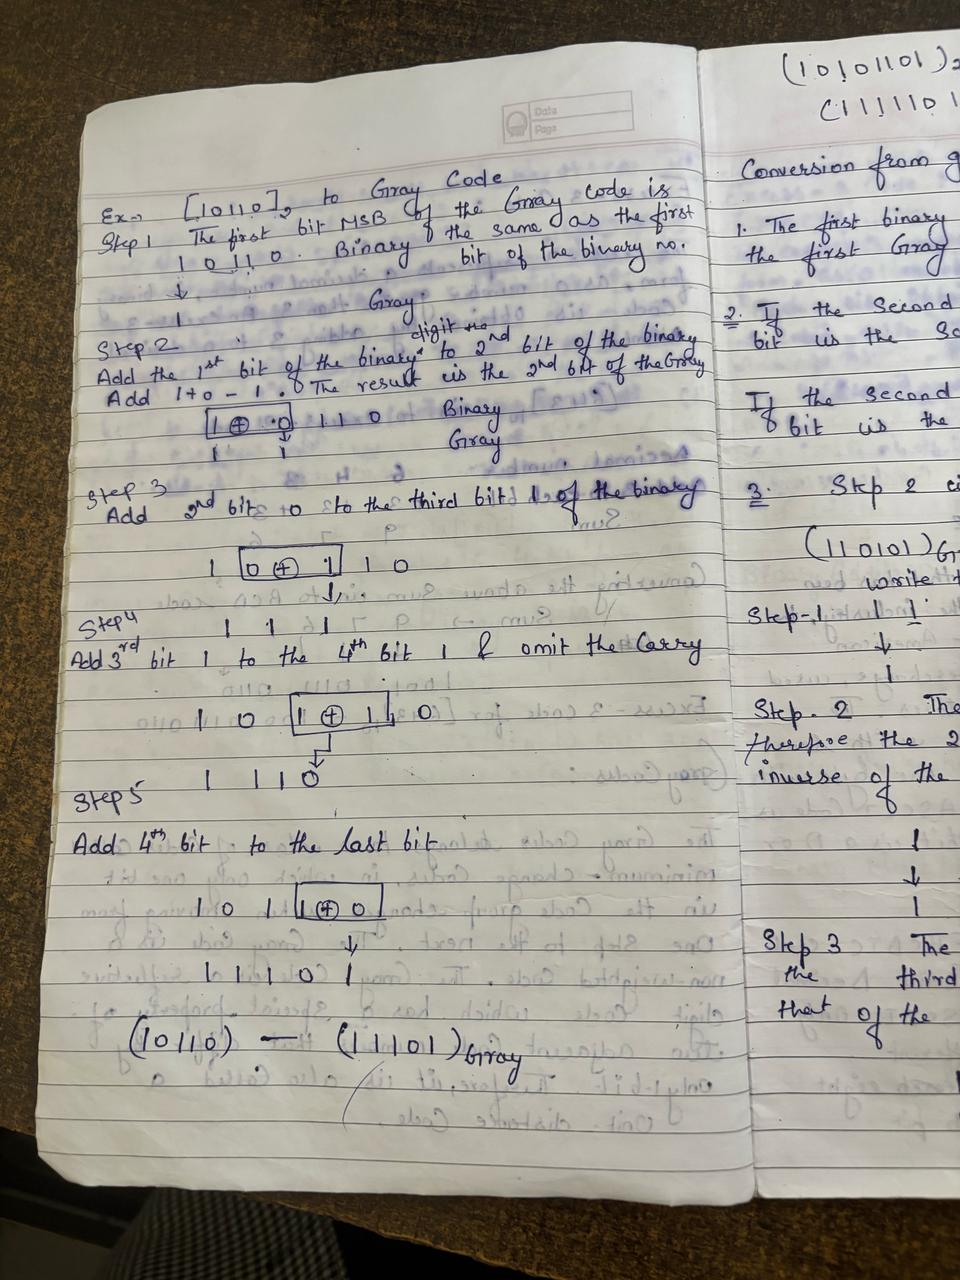 Date
Page
Ex→ [10110]₂ to Gray Code
Step 1 The first bit MSB of the Gray code is
1 0 1 1 0. Binary the same as the first
bit of the binary no.
↓
1 Gray
Step 2
digit the
Add the 1st bit of the binary to 2nd bit of the binary
Add 1+0 - 1. The result is the 2nd bit of the Gray
1 ⊕ 0 1 1 0 Binary
↓
1 1 Gray
Step 3
Add 2nd bit 0 to the third bit 1 of the binary
1 0 ⊕ 1 1 0
↓
1 1 1
Step 4
Add 3rd bit 1 to the 4th bit 1 & omit the Carry
1 0 1 ⊕ 1 0
↓
1 1 1 0
Step 5
Add 4th bit to the last bit
1 0 1 1 ⊕ 0
↓
1 1 1 0 1
(10110) — (11101)Gray
(10101101)₂
(1111101
Conversion from g
1. The first binary
the first Gray
2. If the Second
bit is the Se
If the second
bit is the
3. Step 2
(110101)Gr
write
Step-1. 1 1
↓
1
Step-2 The
therefore the 2
inverse of the
1
↓
1
Step 3 The
the third
that of the